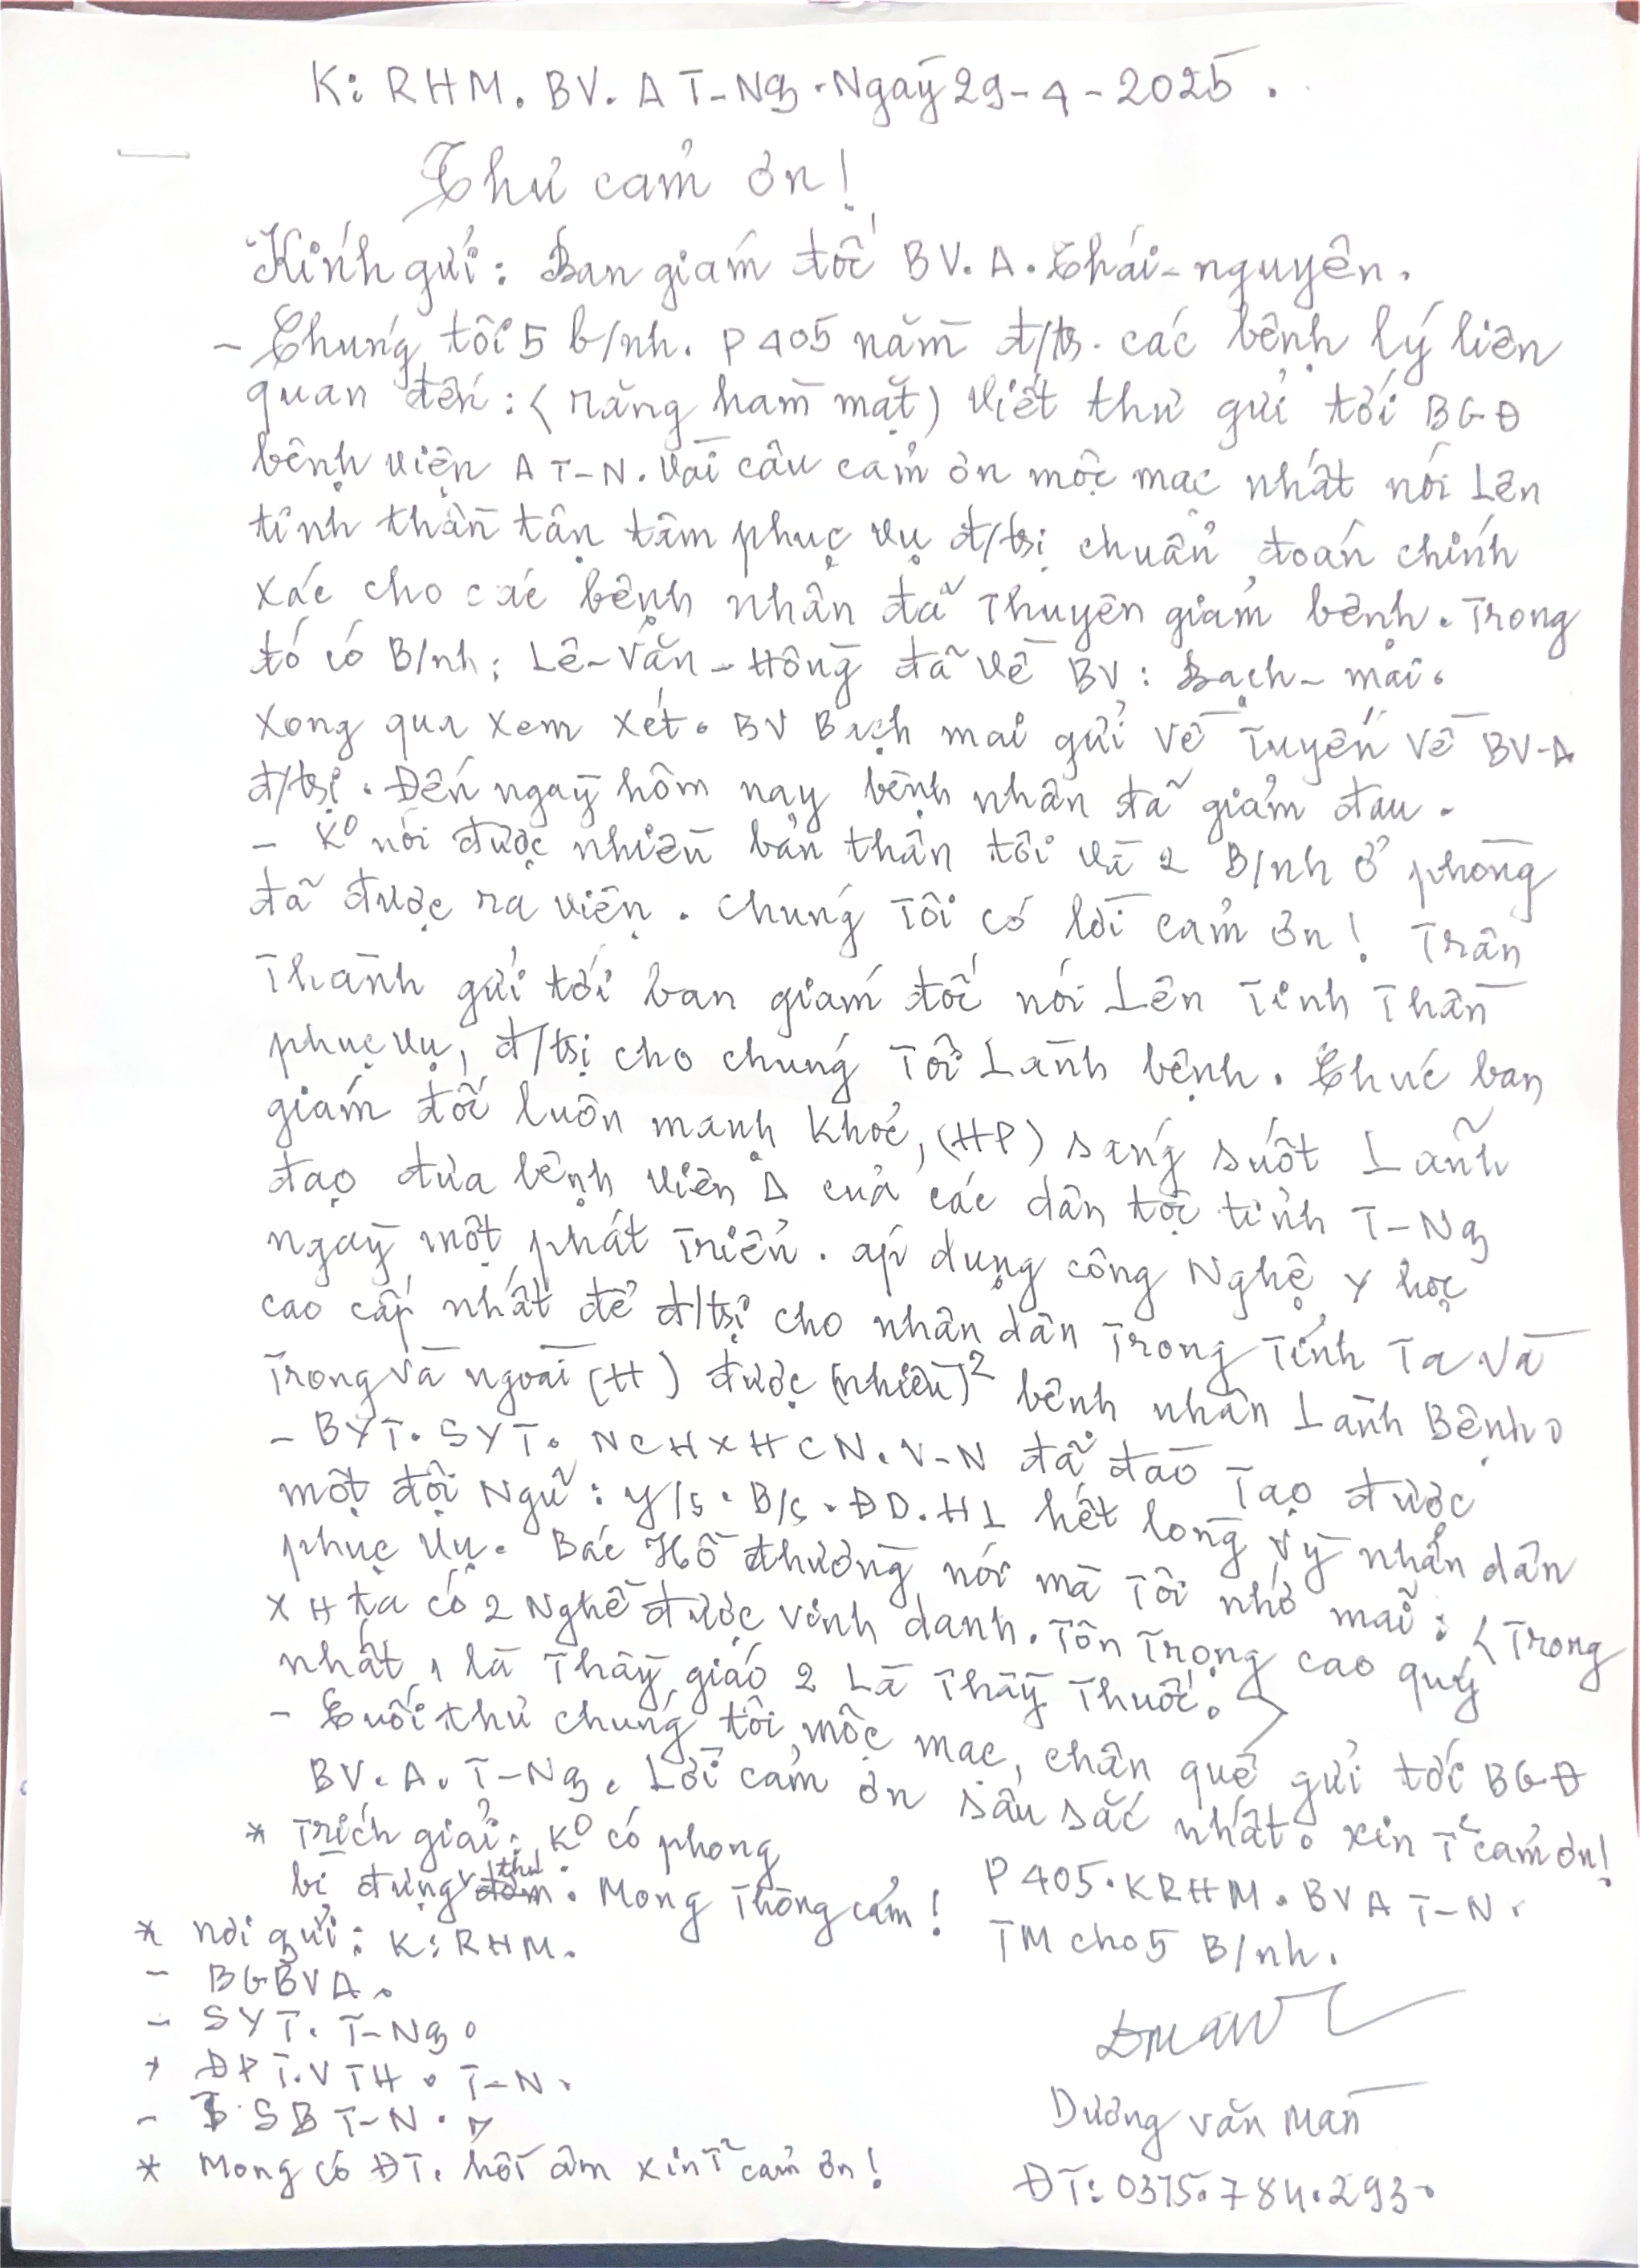 K: RHM. BV. A T-Ng. Ngày 29-4-2025.
Thư cảm ơn!
Kính gửi: Ban giám đốc BV. A. Thái-nguyên.
- Chúng tôi 5 b/nh. P 405 nằm đ/tr. các bệnh lý liên
quan đến: < răng hàm mặt) viết thư gửi tới BGĐ
bệnh viện A T-N. Vài câu cảm ơn mộc mạc nhất nói Lên
tinh thần tận tâm phục vụ đ/trị chuẩn đoán chính
xác cho các bệnh nhân đã Thuyên giảm bệnh. Trong
đó có B/nh: Lê-Văn-Hồng đã về BV: Bạch-mai.
Xong qua xem xét. BV Bạch mai gửi về Tuyến về BV-A
đ/trị. Đến ngày hôm nay bệnh nhân đã giảm đau.
- K⁰ nói được nhiều bản thân tôi và 2 B/nh ở phòng
đã được ra viện. Chúng Tôi có lời cảm ơn! Trân
Thành gửi tới ban giám đốc nói Lên Tinh Thần
phục vụ, đ/trị cho chúng Tôi Lành bệnh. Chúc ban
giám đốc luôn mạnh khoẻ, (HP) sáng suốt Lãnh
đạo đưa bệnh viện A của các dân tộc tỉnh T-Ng
ngày một phát Triển. áp dụng công Nghệ Y học
cao cấp nhất để đ/trị cho nhân dân Trong Tỉnh Ta và
Trong và ngoài (H) được (nhiều)² bệnh nhân Lành Bệnh.
- BYT. SYT. NCHXHCN. V-N đã đào Tạo được
một đội Ngũ: Y/s. B/s. ĐD. HL hết lòng vỳ nhân dân
phục vụ. Bác Hồ thường nói mà Tôi nhớ mãi: < Trong
XH ta có 2 Nghề được vinh danh. Tôn Trọng cao quý
nhất 1 là Thầy giáo 2 Là Thầy Thuốc. >
- Cuối thư chúng tôi mộc mạc, chân quê gửi tới BGĐ
BV. A. T-Ng. Lời cảm ơn sâu sắc nhất. xin T² cảm ơn!
* Trích giải: K⁰ có phong
bì đựng thư. Mong Thông cảm!
P 405. KRHM. BV A T-N.
TM cho 5 B/nh.
* nơi gửi: K: RHM.
- BGBVA.
- SYT. T-Ng.
+ ĐPT.VTH. T-N.
- SB T-N.
Dương văn Màn
* Mong có ĐT. hồi âm xin T² cảm ơn!
ĐT: 0375.784.293.